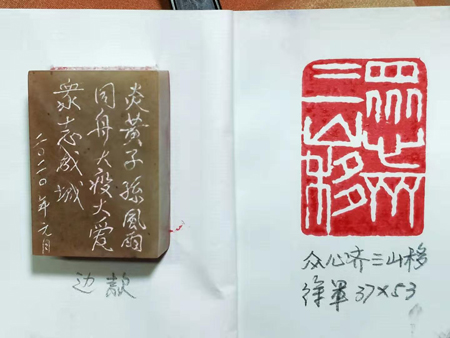 炎黄子孫風雨
同舟大疫大爱
衆志成城
二〇二〇年元月
边款
眾心齊
三山移
众心齐三山移
徐軍 37×53